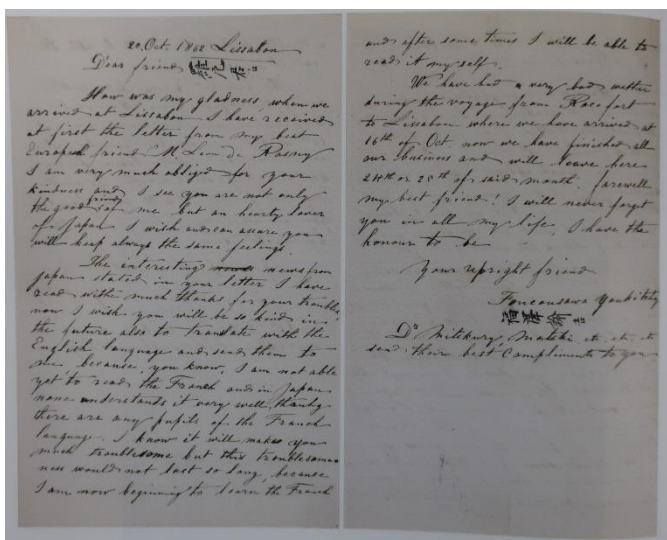 20 Oct. 1862 Lissabon
Dear friend
How was my gladness, when we
arrived at Lissabon I have received
at first the letter from my best
Europeck friend M. Leon De Rosny
I am very much obliged for your
kindness and I see you are not only
the good friend of me but an hearty lover
of Japan I wish and can assure you
will keep always the same feelings.
The interesting news from
Japan stated in your letter I have
read withe much thanks for your trouble,
now I wish you will be so kind in
the future also to translate with the
English language and send them to
me because, you know, I am not able
yet to read the Franch and in Japan
none understands it very well,
there are any pupils of the Franch
language. I know it will makes you
much troublesome but this troublesome
ness would not last so long, because
I am now beginning to learn the Franch
and after some times I will be able to
read it my self.
We have had a very bad wetter
during the voyage from Rocefort
to Lissabon where we have arrived at
16th of Oct. now we have finished all
our business and will leave here
24th or 25th of said month. farewell
my best friend! I will never forget
you in all my life, I have the
honour to be
Your upright friend
Foucousawa Youkitchy
福澤諭吉
Dr Mitskury, Matski etc. etc. etc
send their best compliments to you